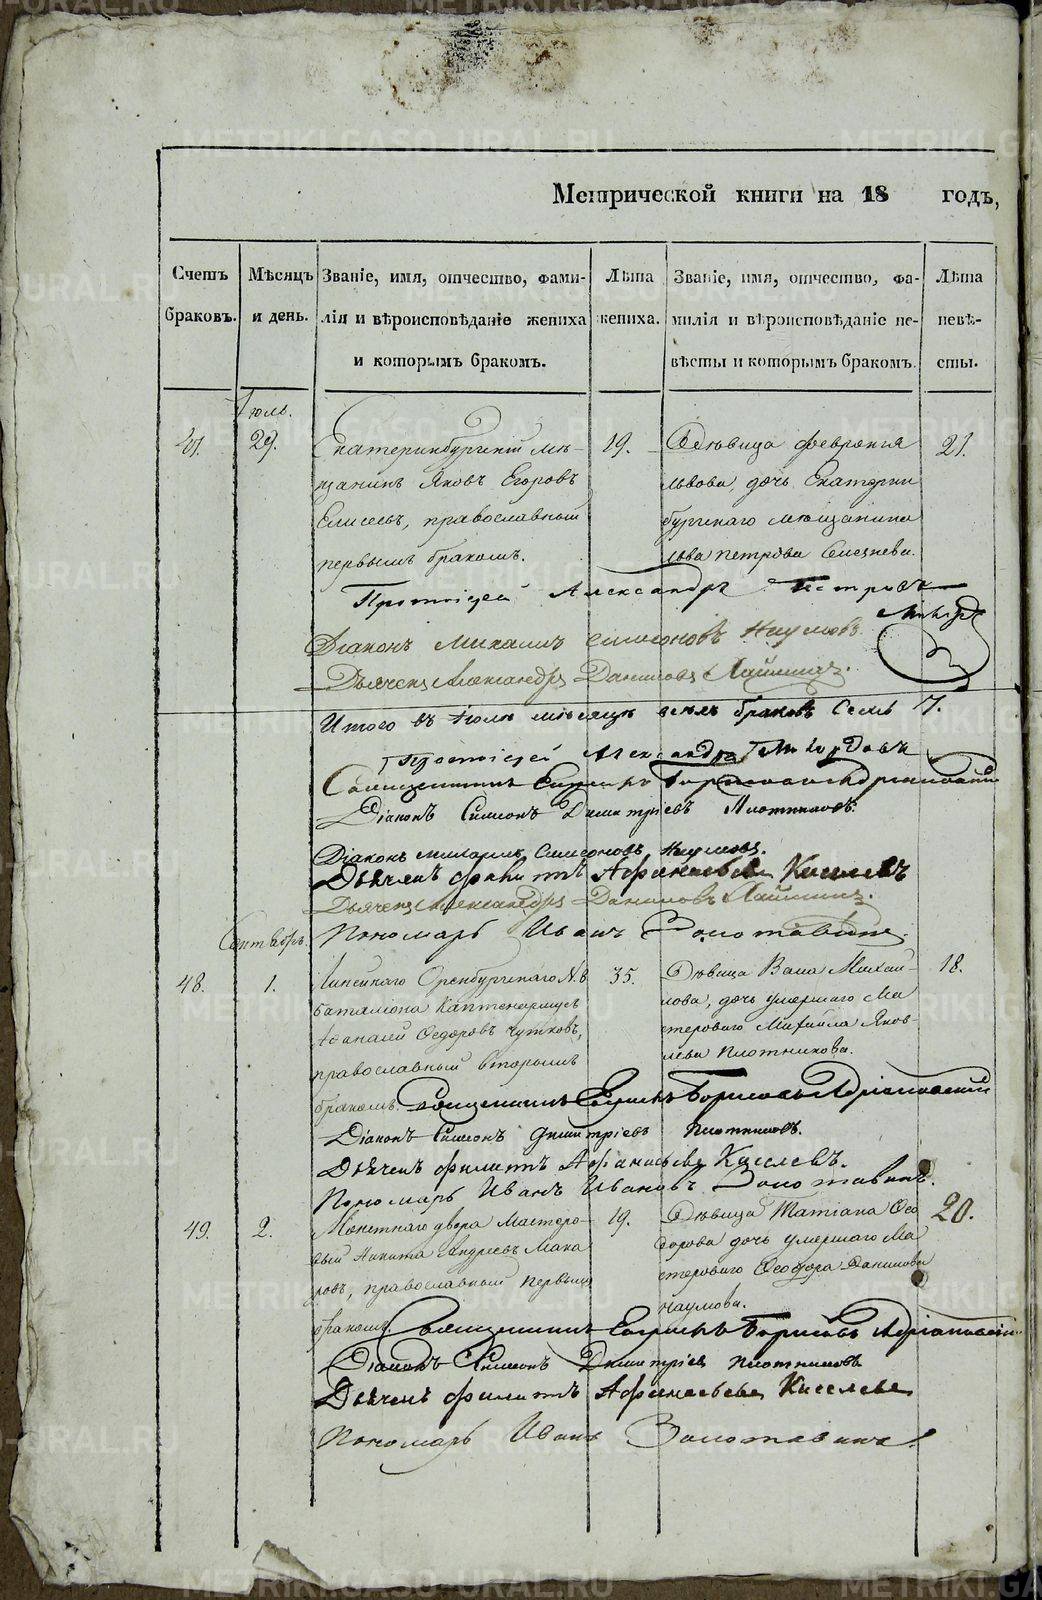 METRIKI.GASO-URAL.RU
Метрической книги на 18 годъ,
Счетъ браковъ.
Мѣсяцъ и день.
Званіе, имя, отчество, фами-
лія и вѣроисповѣданіе жениха
и которымъ бракомъ.
Лѣта жениха.
Званіе, имя, отчество, фа-
милія и вѣроисповѣданіе не-
вѣсты и которымъ бракомъ.
Лѣта невѣ-
сты.
Іюль.
29.
Екатеринбургскій мѣ-
щанинъ Яковъ Егоровъ
Елисеевъ, православный
первымъ бракомъ.
19.
Дѣвица Феврония
Львова, дочь Екатерин
бургскаго мѣщанина
Льва Петрова
21.
Протоіерей Александръ
Діаконъ Михаилъ Симеоновъ Наумовъ.
Дьячекъ Александръ Даниловъ
Итого въ Іюлѣ мѣсяцѣ всѣхъ браковъ семь 7.
Протоіерей Александръ
Священникъ
Діаконъ Симеонъ Димитріевъ Плотниковъ.
Діаконъ Михаилъ Симеоновъ Наумовъ.
Дьячекъ Филиппъ Афанасьевъ Киселевъ
Дьячекъ Александръ Даниловъ
Пономарь Иванъ Золотавинъ.
Сентябрь.
48.
1.
Линейнаго Оренбургскаго №8
баталіона Каптенармусъ
Афанасій Ѳедоровъ Чутковъ,
православный вторымъ
бракомъ.
35.
Дѣвица Васса Михай-
лова, дочь умершаго Ма
стероваго Михайла Яков-
лева Плотникова.
18.
Священникъ Борисовъ Адріановскій
Діаконъ Симеонъ Димитріевъ Плотниковъ.
Дьячекъ Филиппъ Афанасьевъ Киселевъ.
Пономарь Иванъ Ивановъ Золотавинъ.
49.
2.
Монетнаго двора Мастеро-
вый Никита Андреевъ Мака
ровъ, православный первымъ
бракомъ.
19.
Дѣвица Татіана Ѳео
дорова дочь умершаго Ма
стероваго Ѳеодора Данилова
Наумова.
20.
Священникъ Борисовъ Адріановскій
Діаконъ Симеонъ Димитріевъ Плотниковъ
Дьячекъ Филиппъ Афанасьевъ Киселевъ
Пономарь Иванъ Золотавинъ.